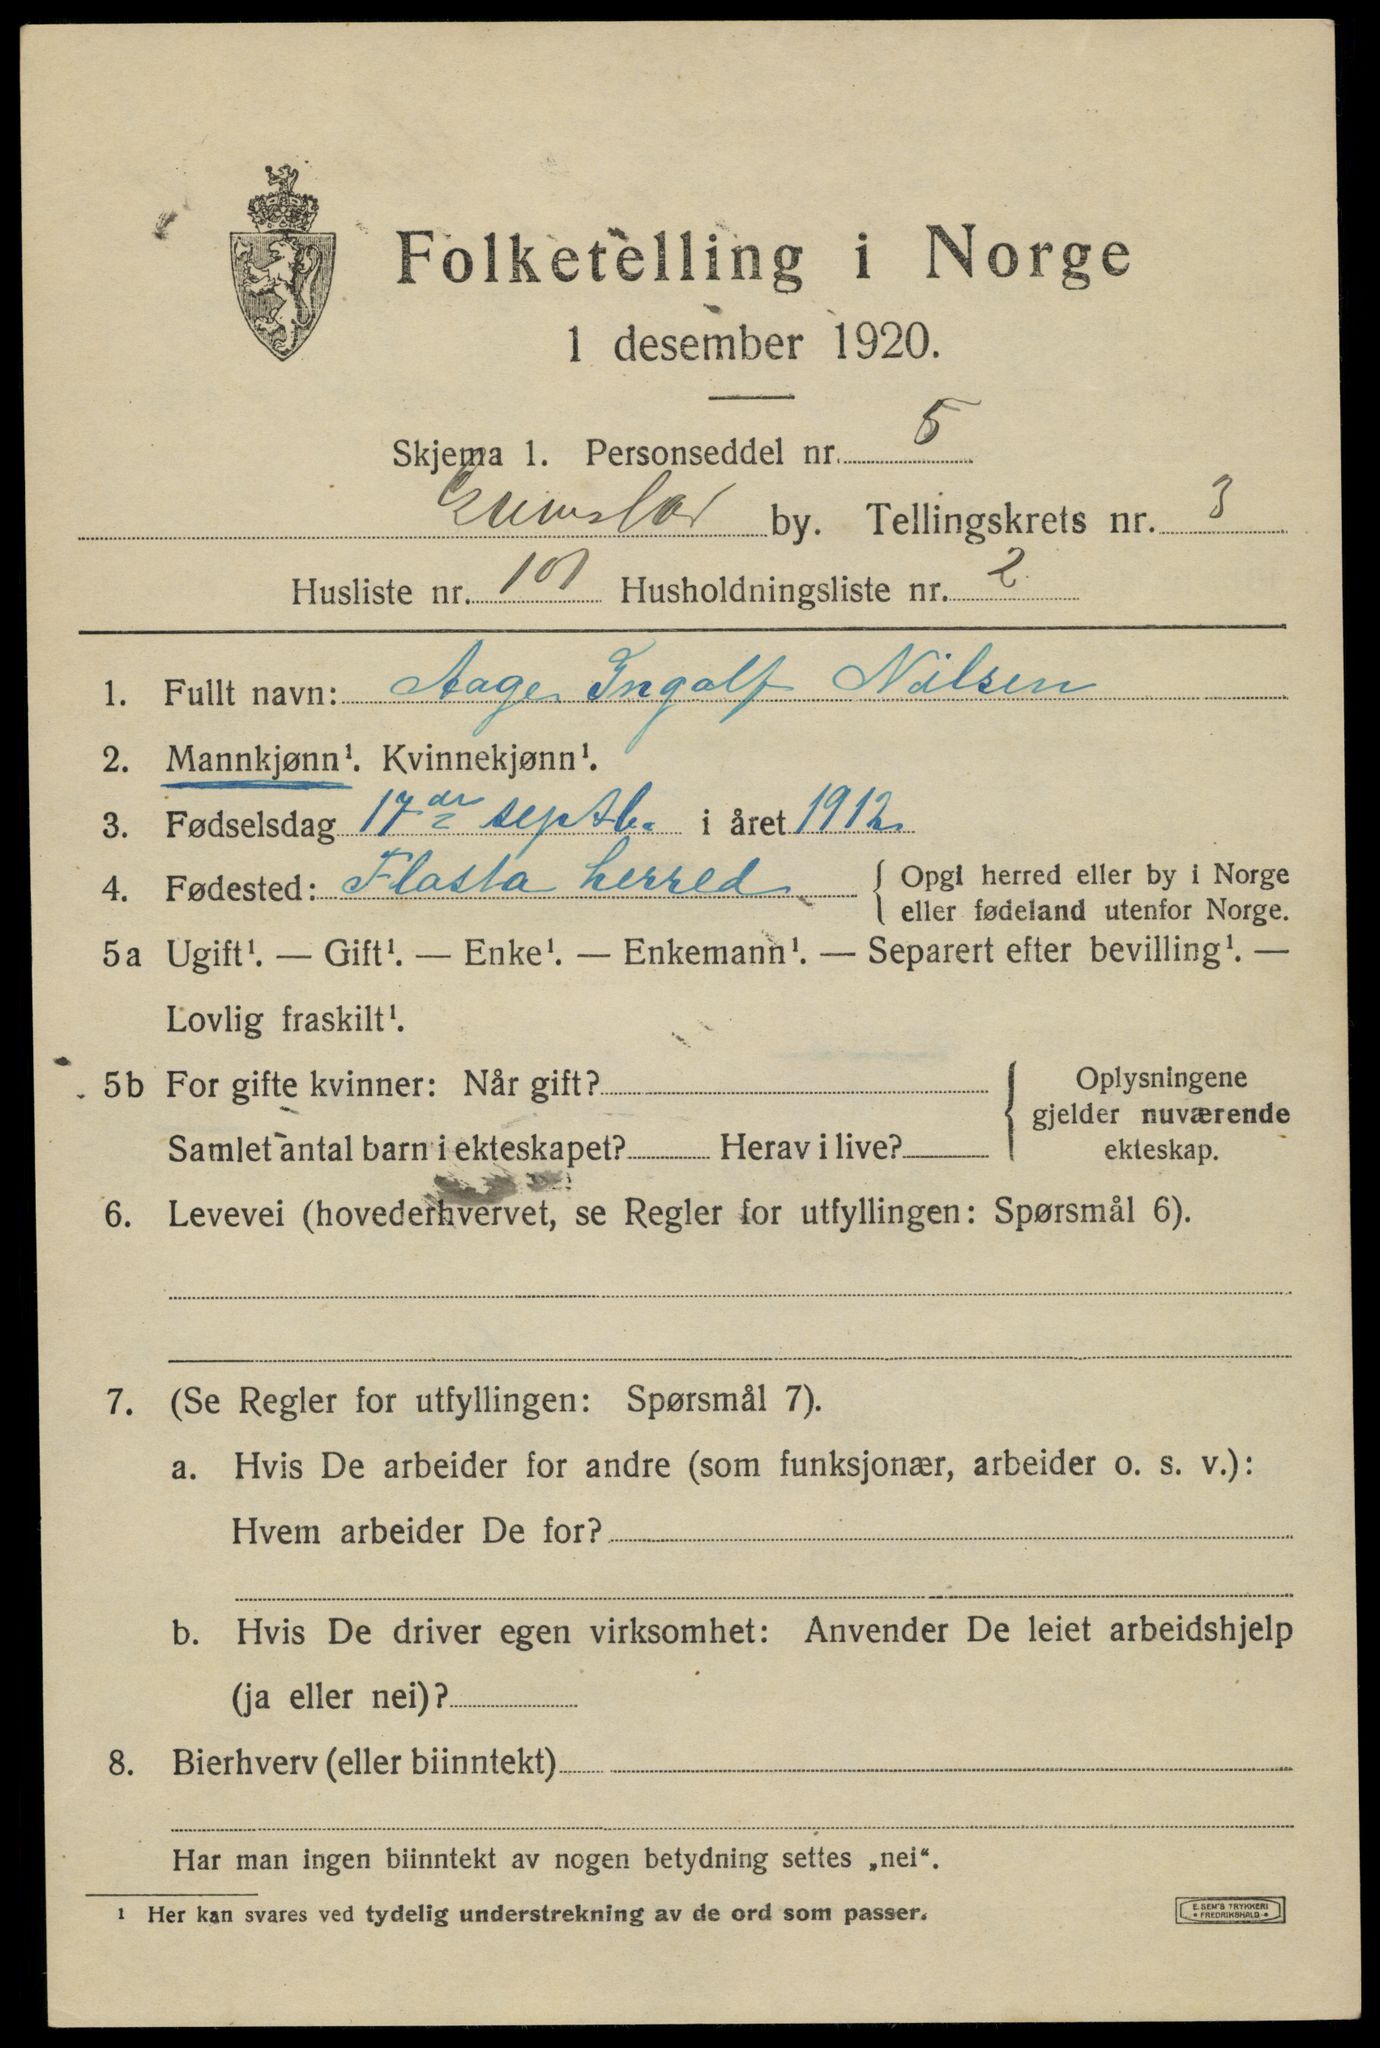 Folketelling i Norge
1 desember 1920.
Skjema 1. Personseddel nr. 5
Grimstad by. Tellingskrets nr. 3
Husliste nr. 101 Husholdningsliste nr. 2
1. Fullt navn: Aage Ingolf Nilsen
2. Mannkjønn¹. Kvinnekjønn¹.
3. Fødselsdag 17de septb. i året 1912
4. Fødested: Flasta herred { Opgi herred eller by i Norge
eller fødeland utenfor Norge.
5a Ugift¹. — Gift¹. — Enke¹. — Enkemann¹. — Separert efter bevilling¹. —
Lovlig fraskilt¹.
5b For gifte kvinner: Når gift? { Oplysningene
gjelder nuværende
Samlet antal barn i ekteskapet? Herav i live? ekteskap.
6. Levevei (hovederhvervet, se Regler for utfyllingen: Spørsmål 6).
7. (Se Regler for utfyllingen: Spørsmål 7).
a. Hvis De arbeider for andre (som funksjonær, arbeider o. s. v.):
Hvem arbeider De for?
b. Hvis De driver egen virksomhet: Anvender De leiet arbeidshjelp
(ja eller nei)?
8. Bierhverv (eller biinntekt)
Har man ingen biinntekt av nogen betydning settes „nei“.
¹ Her kan svares ved tydelig understrekning av de ord som passer.
E. SEM'S TRYKKERI
• FREDRIKSHALD •